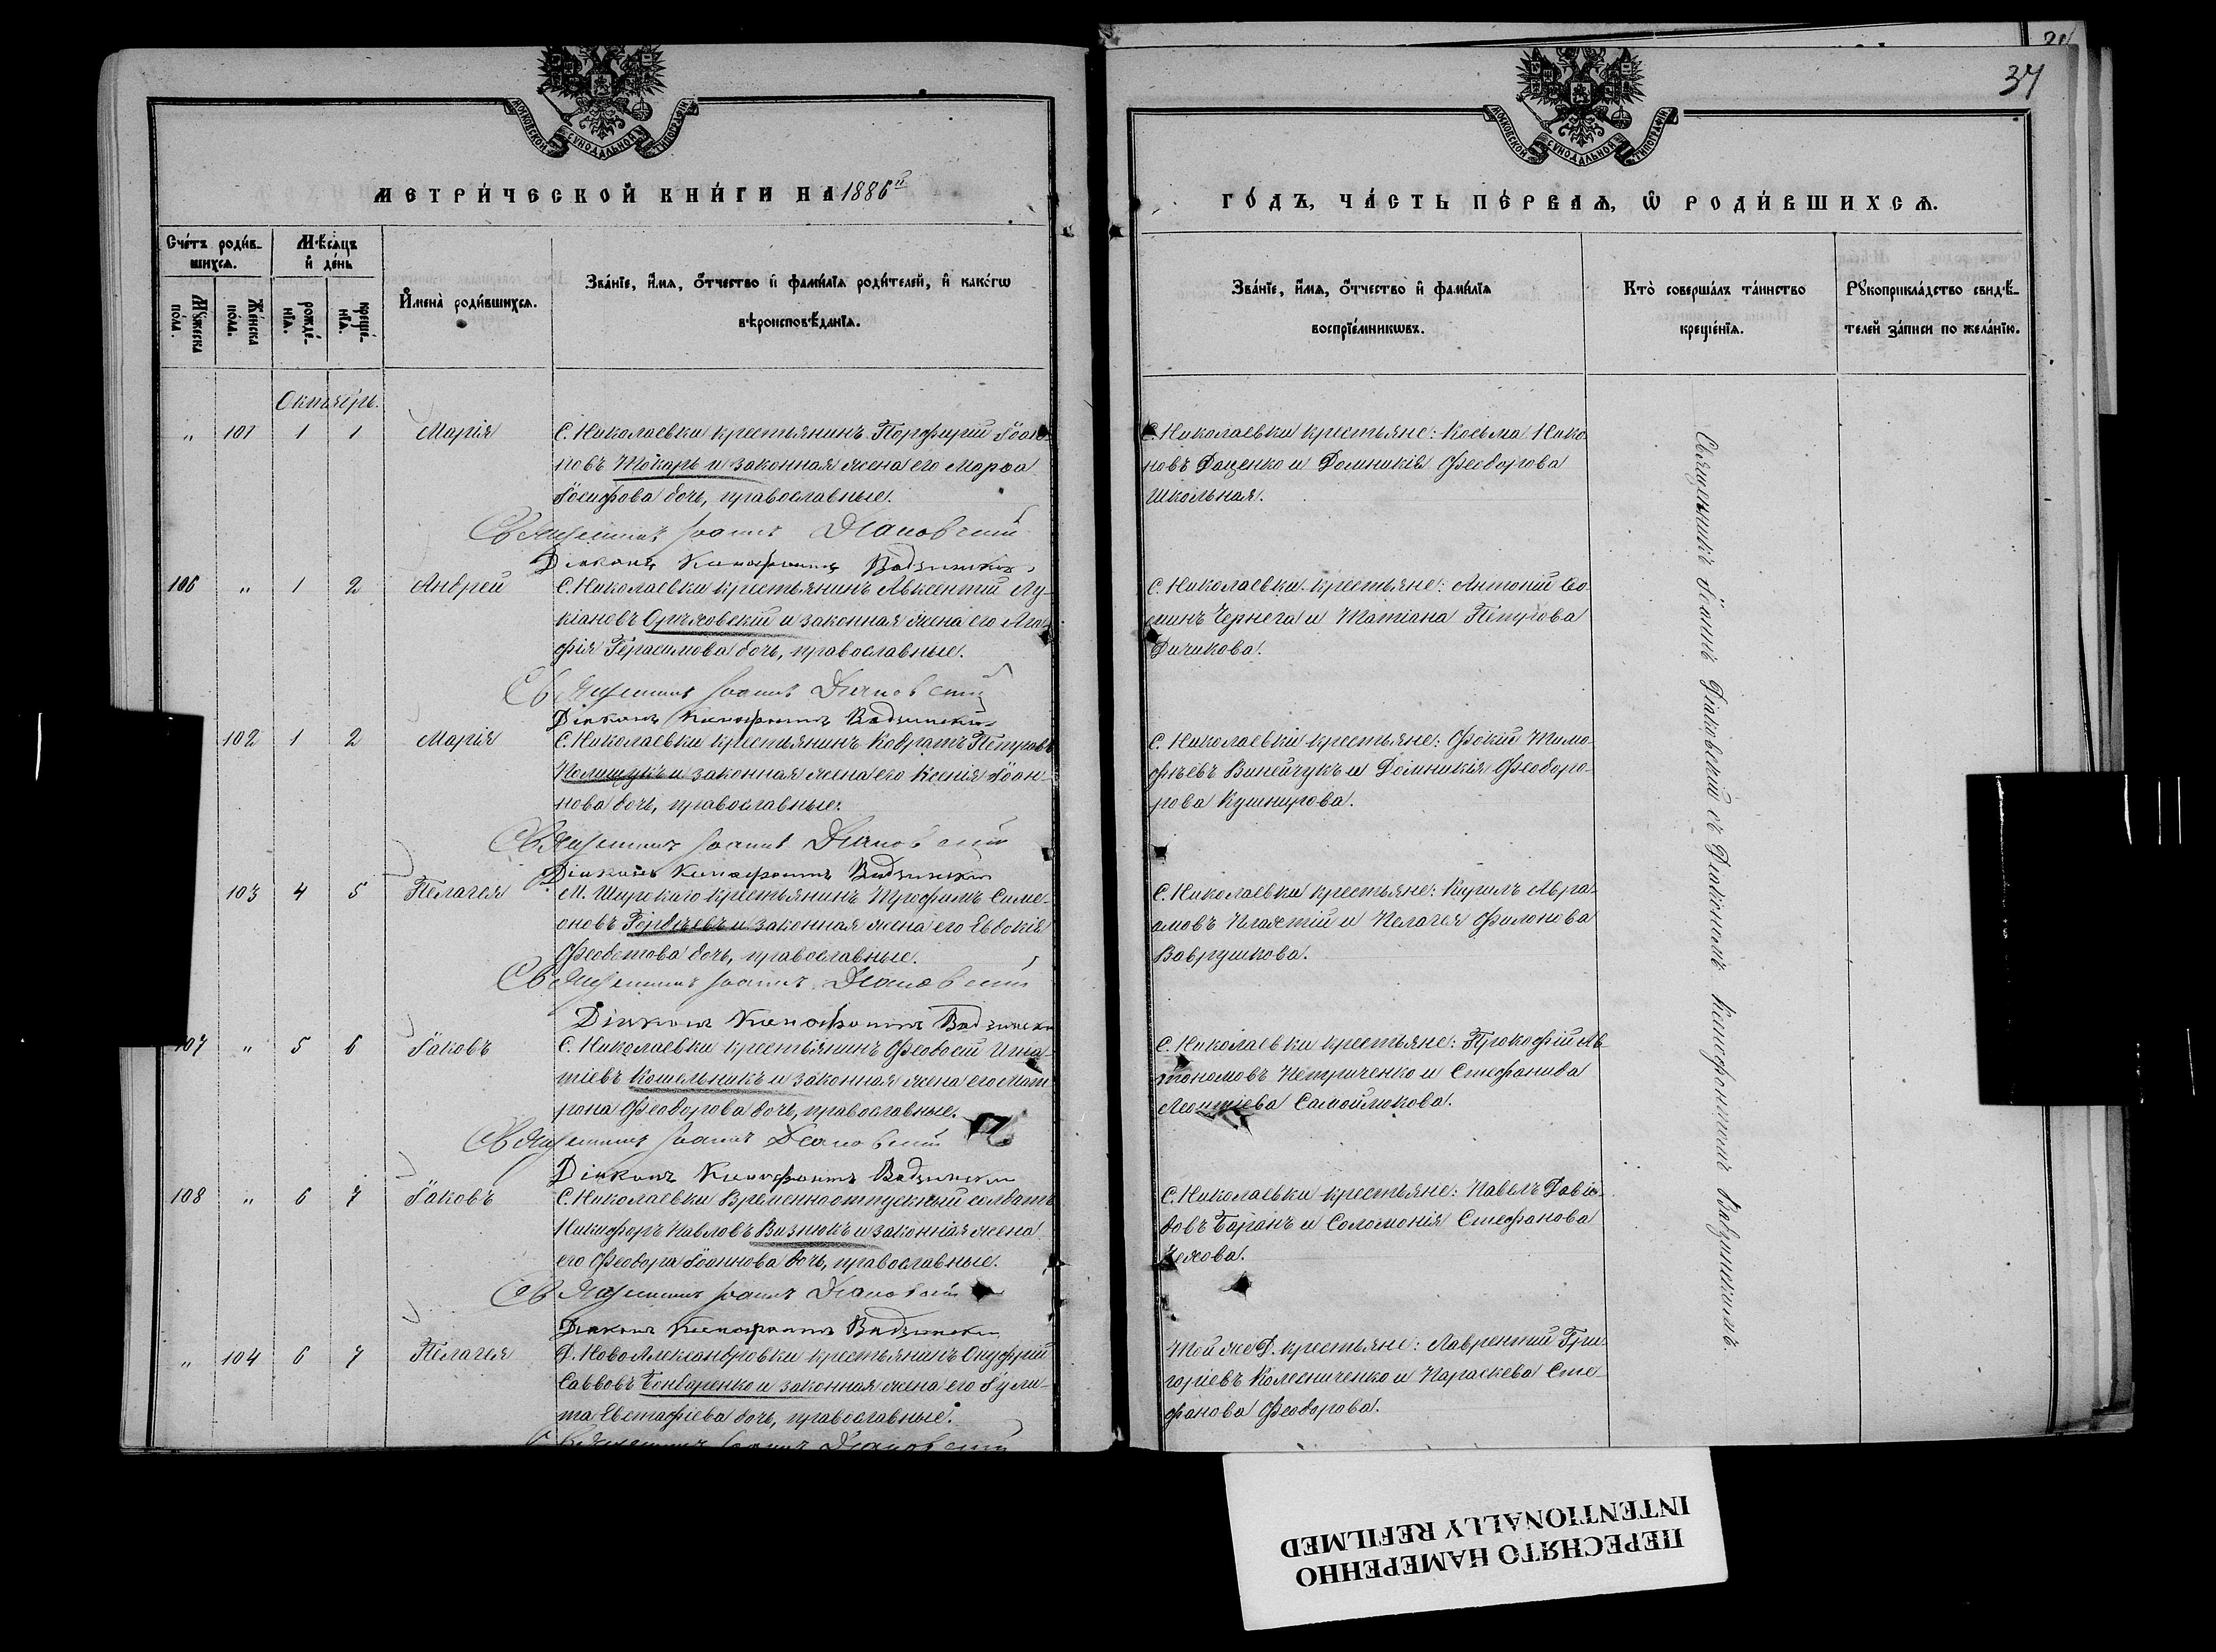 37
МОСКОВСКОЙ СУНОДАЛЬНОЙ ТИПОГРАФІИ
МОСКОВСКОЙ СУНОДАЛЬНОЙ ТИПОГРАФІИ
МЕТРИ́ЧЕСКОЙ КНИ́ГИ НА 1886й
ГО́ДЪ, ЧА́СТЬ ПЕ́РВАѦ, Ѡ РОДИ́ВШИХСѦ.
Сче́тъ роди́в-
шихсѧ.
Мѣ́сѧцъ
и҆ де́нь
Мꙋ́жеска
по́ла.
Же́нска
по́ла.
рожде́-
нїѧ.
креще́-
нїѧ.
И҆мена̀ роди́вшихсѧ.
Зва́нїе, и҆́мѧ, ѻ҆́тчество и҆ фами́лїѧ роди́телей, и҆ како́гѡ
вѣроисповѣ́данїѧ.
Зва́нїе, и҆́мѧ, ѻ҆́тчество и҆ фами́лїѧ
воспрїе́мникѡвъ.
Кто̀ соверша́лъ та́инство
креще́нїѧ.
Рꙋкоприкла́дство свидѣ́-
телей за́писи по жела́нїю.
Октябрь.
„ 101 1 1 Марія
С. Николаевки крестьянинъ Порфирій Іоан-
новъ Токарь и законная жена его Марѳа
Іосифова дочь, православные.
С. Николаевки крестьяне: Косьма Нико-
новъ Даценко и Домникія Феодорова
Школьная.
Священникъ Іоаннъ Діаковскій
Діаконъ Ксенофонтъ Вадзинскій
106 „ 1 2 Андрей
С. Николаевки крестьянинъ Авксентій Лу-
кіановъ Оржховскій и законная жена его Ага-
фія Герасимова дочь, православные.
С. Николаевки крестьяне: Антоній Ѳо-
минъ Чернега и Татіана Петрова
Дичкова.
Священникъ Іоаннъ Діаковскій
Діаконъ Ксенофонтъ Вадзинскій
102 1 2 Марія
С. Николаевки крестьянинъ Кодратъ Петровъ
Полищукъ и законная жена его Ксенія Іоан-
нова дочь, православные.
С. Николаевки крестьяне: Фокій Тимо-
фѣевъ Винничукъ и Домникія Феодо-
рова Кушнирова.
Священникъ Іоаннъ Діаковскій
Діаконъ Ксенофонтъ Вадзинскій
103 4 5 Пелагея
М. Широкаго крестьянинъ Трофимъ Симе-
оновъ Гордѣевъ и законная жена его Евдокія
Феодотова дочь, православные.
С. Николаевки крестьяне: Кирилъ Авра-
амовъ и Пелагея Филонова
Ваврушкова.
Священникъ Іоаннъ Діаковскій
Діаконъ Ксенофонтъ Вадзинскій
107 „ 5 6 Іаковъ
С. Николаевки крестьянинъ Феодосій Игна-
тіевъ Кошельникъ и законная жена его Мат-
рона Феодорова дочь, православные.
С. Николаевки крестьяне: Прокофій Ав-
тономовъ Петриченко и Стефанида
Леонтіева Самойлюкова.
Священникъ Іоаннъ Діаковскій
Діаконъ Ксенофонтъ Вадзинскій
108 „ 6 7 Іаковъ
С. Николаевки Временно отпускный солдатъ
Никифоръ Павловъ Визнюкъ и законная жена
его Феодора Іоаннова дочь, православные.
С. Николаевки крестьяне: Павелъ Дави-
довъ Баранъ и Соломонія Стефанова
Священникъ Іоаннъ Діаковскій
Діаконъ Ксенофонтъ Вадзинскій
„ 104 6 7 Пелагея
Д. НовоАлександровки крестьянинъ Онуфрій
Саввовъ Бондаренко и законная жена его Іули-
та Евстафіева дочь, православные.
Той же Д. крестьяне: Лаврентій Гри-
горіевъ Колесниченко и Параскева Сте-
фанова Феодорова.
Священникъ Іоаннъ Діаковскій
Священникъ Іоаннъ Діаковскій съ Діакономъ Ксенофонтомъ Вадзинскимъ.
ПЕРЕСНЯТО НАМЕРЕННО
INTENTIONALLY REFILMED